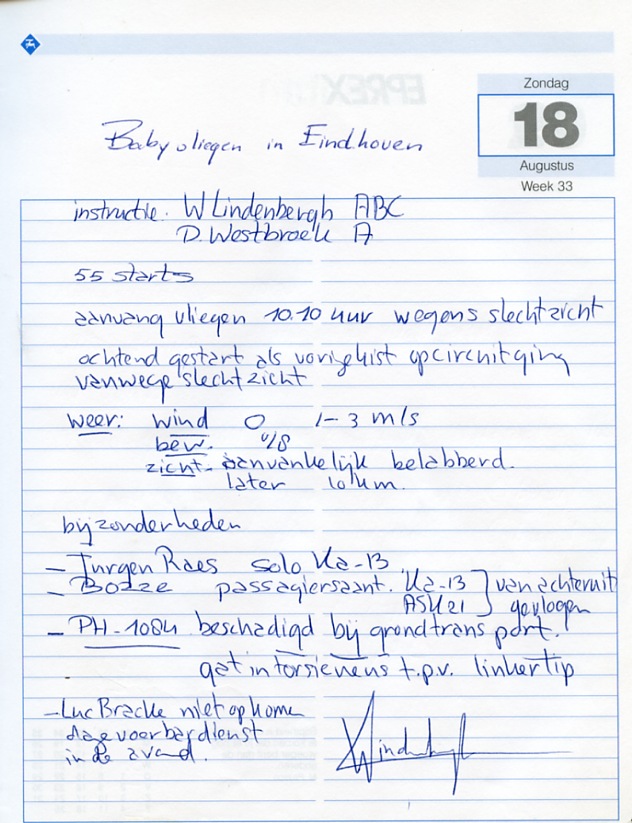 Zondag
18
Augustus
Week 33
Baby vliegen in Eindhoven
instructie. W Lindenbergh ABC
D. Westbroek A
55 starts
aanvang vliegen 10.10 uur wegens slechtzicht
ochtend gestart als vorige list op circuit ging
vanwege slecht zicht
weer: wind O 1-3 m/s
bew. 0/8
zicht - aanvankelijk belabberd.
later 10 km.
bijzonderheden
- Jurgen Raes solo Ka-13
- Bozze passagiersaant. Ka-13 ] van achteruit
ASK21 gevlogen
- PH-1084 beschadigd bij grondtransport.
gat in torsieneus t.p.v. linkertip
- Luc Bracke niet op komen
dage voor bardienst
in de avond.